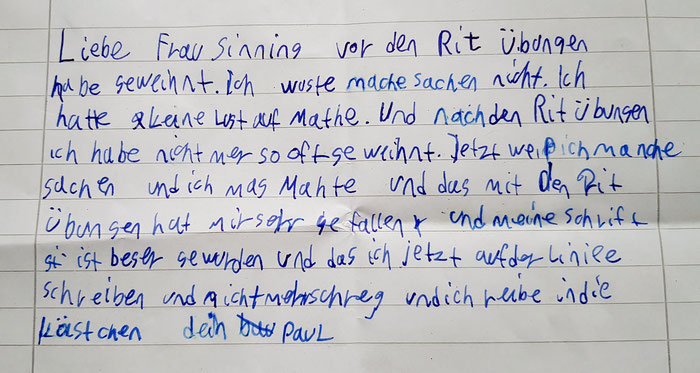 Liebe Frau Sinning vor den Rit übungen
habe geweihnt. Ich wuste mache sachen nicht. Ich
hatte keine Lust auf Mathe. Und nach den Rit übungen
ich habe nicht mer so oft geweihnt. Jetzt weiß ich manche
sachen und ich mag Mahte und das mit den Rit
übungen hat mir sehr gefallen und meine schrift
ist beser gewurden und das ich jetzt auf der Liniee
schreiben und nicht mehr schreg und ich reibe in die
kästchen dein Paul